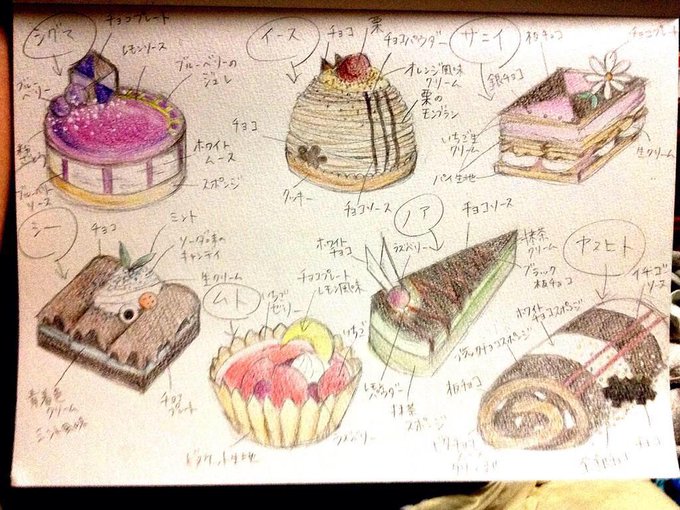 シグマ
チョコプレート
レモンソース
ブルーベリーの
ジュレ
ブルー
ベリー
ホワイト
ムース
スポンジ
ブルーベリー
ソース
イース
チョコ
栗
チョコパウダー
オレンジ風味
クリーム
栗の
モンブラン
チョコ
クッキー
チョコソース
ザニイ
板チョコ
チョコプレート
銀チョコ
いちご生
クリーム
パイ生地
生クリーム
シー
チョコ
ミント
ソーダ味の
キャンディ
生クリーム
青着色
クリーム
ミント風味
チョコ
プレート
ムト
いちご
ゼリー
チョコプレート
レモン風味
いちご
ラズベリー
ビスケット生地
ノア
チョコソース
ホワイト
チョコ
ラズベリー
抹茶
クリーム
ブラック
板チョコ
レモン
パウダー
抹茶
スポンジ
ヤスヒト
イチゴ
ソース
ホワイト
チョコスポンジ
ブラックチョコスポンジ
板チョコ
チョコ